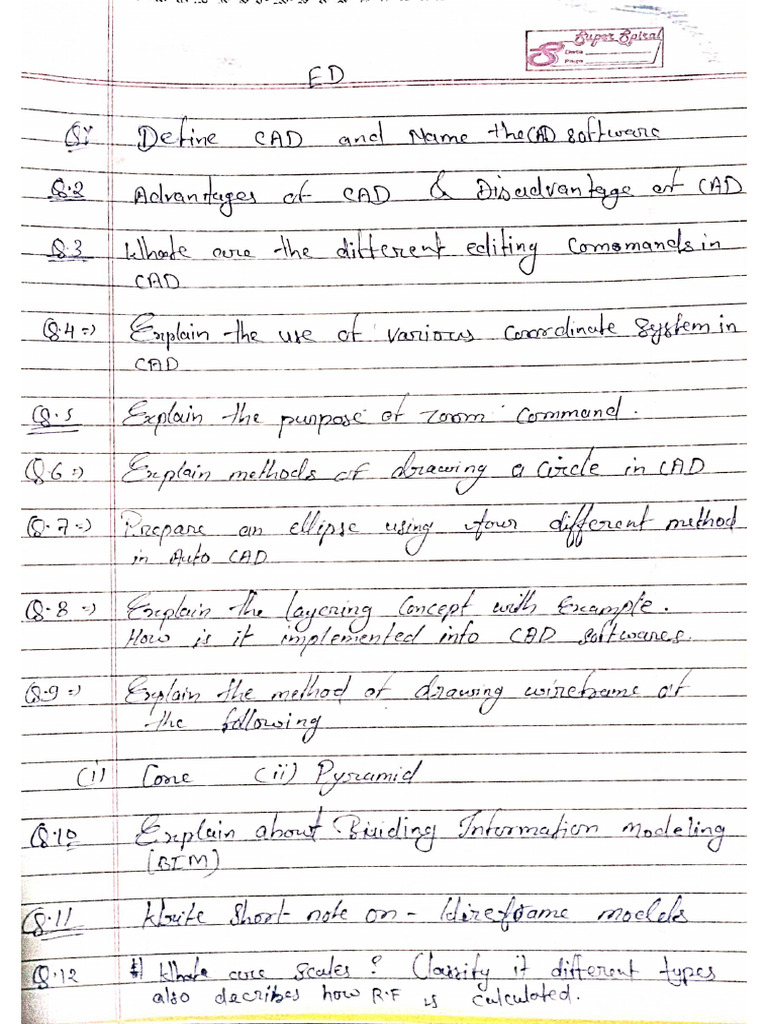 Super Spiral
Date
Page
ED
Q.1 Define CAD and Name the CAD software
Q.2 Advantages of CAD & Disadvantage of CAD
Q.3 Whate are the different editing Commands in
CAD
Q.4 => Explain the use of various coordinate system in
CAD
Q.5 Explain the purpose of zoom command.
Q.6 => Explain methods of drawing a circle in CAD
Q.7 => Prepare an ellipse using four different method
in Auto CAD
Q.8 => Explain the layering concept with Example.
How is it implemented into CAD softwares.
Q.9 => Explain the method of drawing wireframe of
the following
(i) Cone (ii) Pyramid
Q.10 Explain about Buiding Information modeling
(BIM)
Q.11 Write short note on - Wireframe models
Q.12 Whate are scales? Classify it different types
also decribes how R.F is calculated.